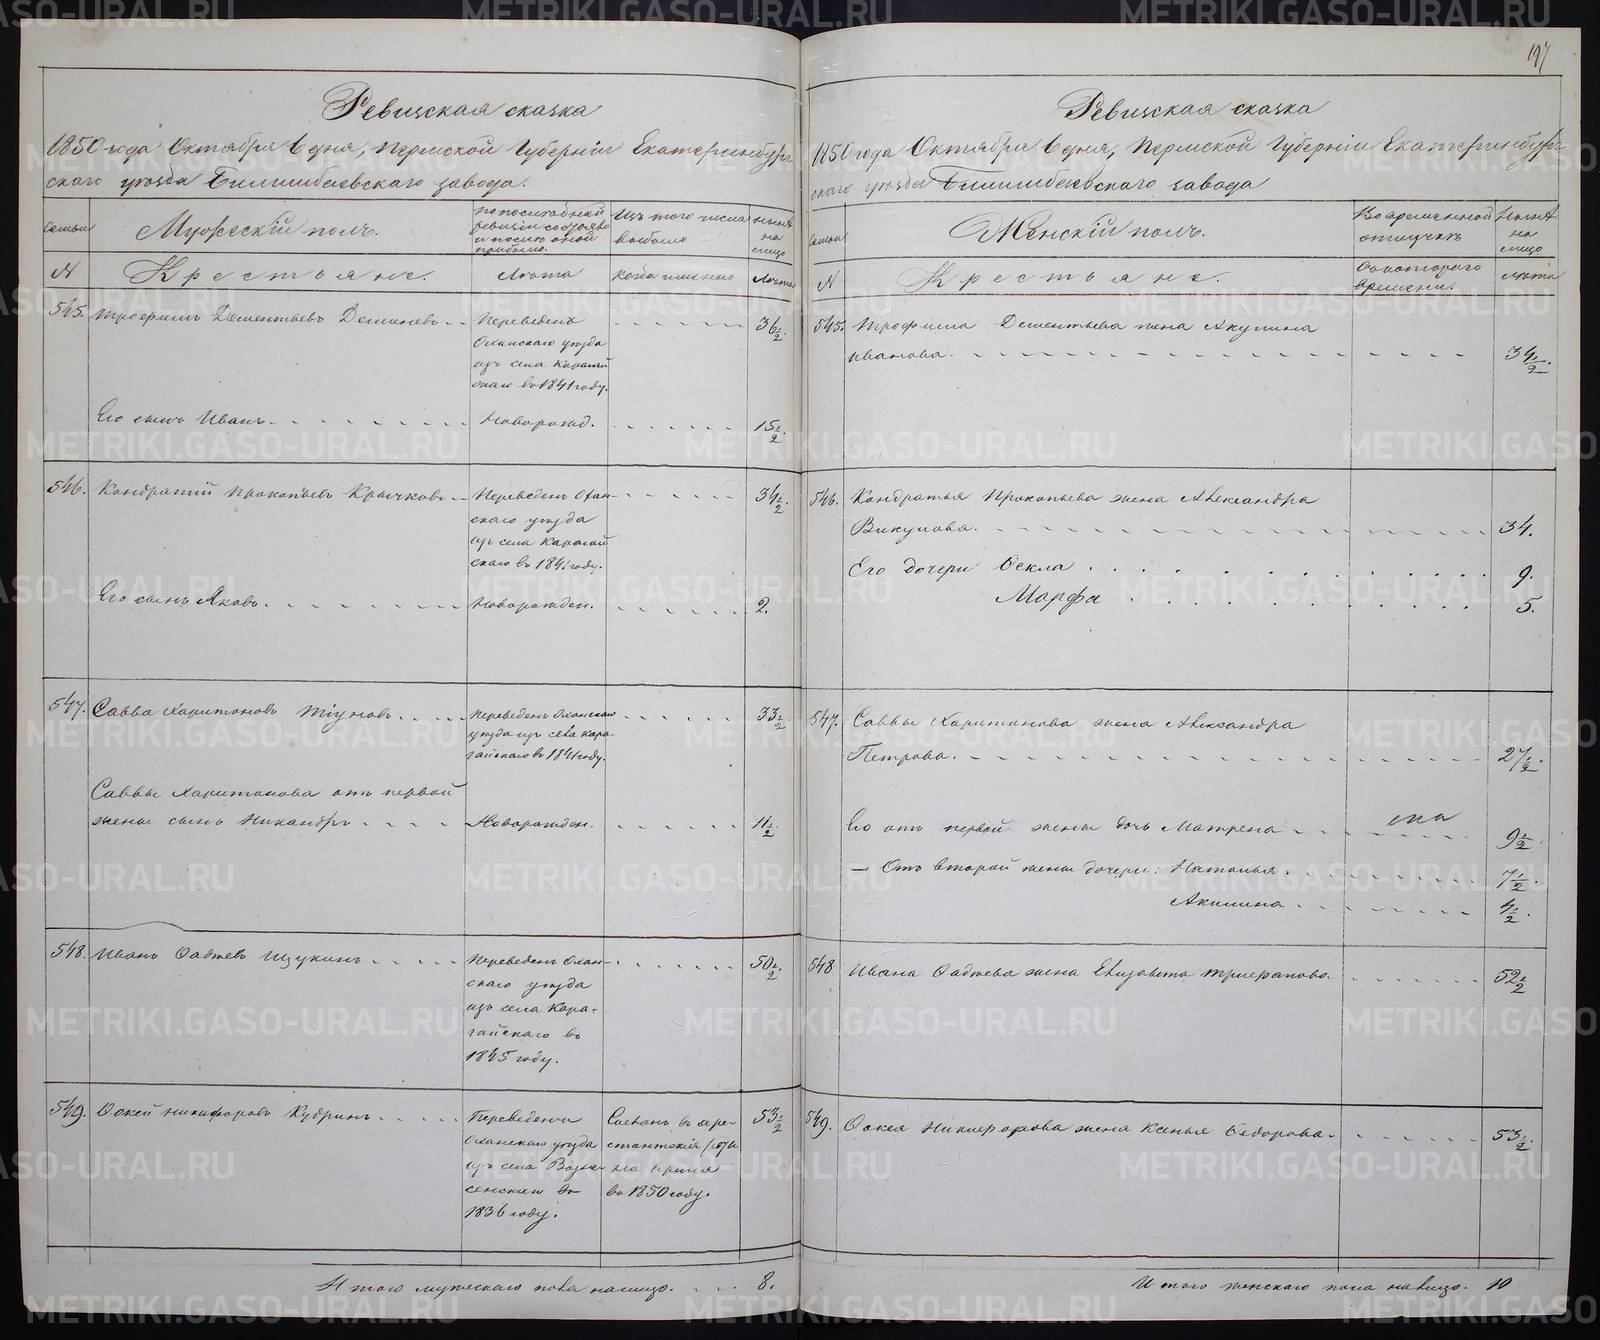 197
Ревизская сказка
1850 года Октября 6 дня, Пермской Губерніи Екатеринбург-
скаго уѣзда Билимбаевскаго завода.
семьи
Мужескій полъ.
по последней
ревизіи состояло
и после оной
прибыло.
Изъ того числа
выбыло
ныне
на
лицо
№
Крестьяне.
Лѣта
когда именно
Лѣта
545. Трофимъ Дементьевъ Деминевъ
Переведенъ
Оханскаго уезда
изъ села Карагай
скаго въ 1841 году.
36 1/2
Его сынъ Иванъ
Новорожд.
15 1/2
546. Кондратій Прокопьевъ Крычковъ
Переведенъ Охан-
скаго уезда
изъ села Карагай
скаго въ 1841 году.
34 1/2
Его сынъ Яковъ
Новорожден.
2.
547. Савва Харитоновъ Тіуновъ
Переведенъ Оханскаго
уезда изъ села Кара-
гайскаго въ 1841 году.
33 1/2
Саввы Харитонова отъ первой
жены сынъ Никандръ
Новорожден.
11 1/2
548. Иванъ Фадѣевъ Щукинъ
Переведенъ Охан-
скаго уезда
изъ села Кара-
гайскаго въ
1845 году.
50 1/2
549. Фокей Никифоровъ Кудринъ
Переведенъ
Оханскаго уезда
изъ села Возне-
сенскаго въ
1836 году.
Сосланъ въ аре-
стантскія роты
на время
въ 1850 году.
53 1/2
Итого мужескаго пола налицо. 8.
Ревизская сказка
1850 года Октября 6 дня, Пермской Губерніи Екатеринбург-
скаго уѣзда Билимбаевскаго завода
семьи
Женскій полъ.
Во временной
отлучкѣ
Нынѣ
на
лицо
№
Крестьяне.
Съ котораго
времени.
Лѣта
545. Трофима Дементьева жена Акулина
Иванова.
34 1/2
546. Кондратья Прокопьева жена Александра
Викулова.
34.
Его дочери Фекла
9.
Марфа
5.
547. Саввы Харитонова жена Александра
Петрова.
27 1/2
Его отъ первой жены дочь Матрена
9 1/2
— Отъ второй жены дочери: Наталья
7 1/2
Акилина
4 1/2
548 Ивана Фадѣева жена Елизавета Трифанова
52 1/2
549. Фокея Никифорова жена Ксенья Федорова
53 1/2
Итого женскаго пола налицо. 10
METRIKI.GASO-URAL.RU